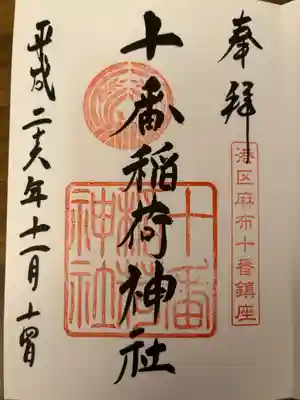 奉拝
港区麻布十番鎮座
十番稲荷神社
十番稲荷神社
平成二十六年十一月十四日